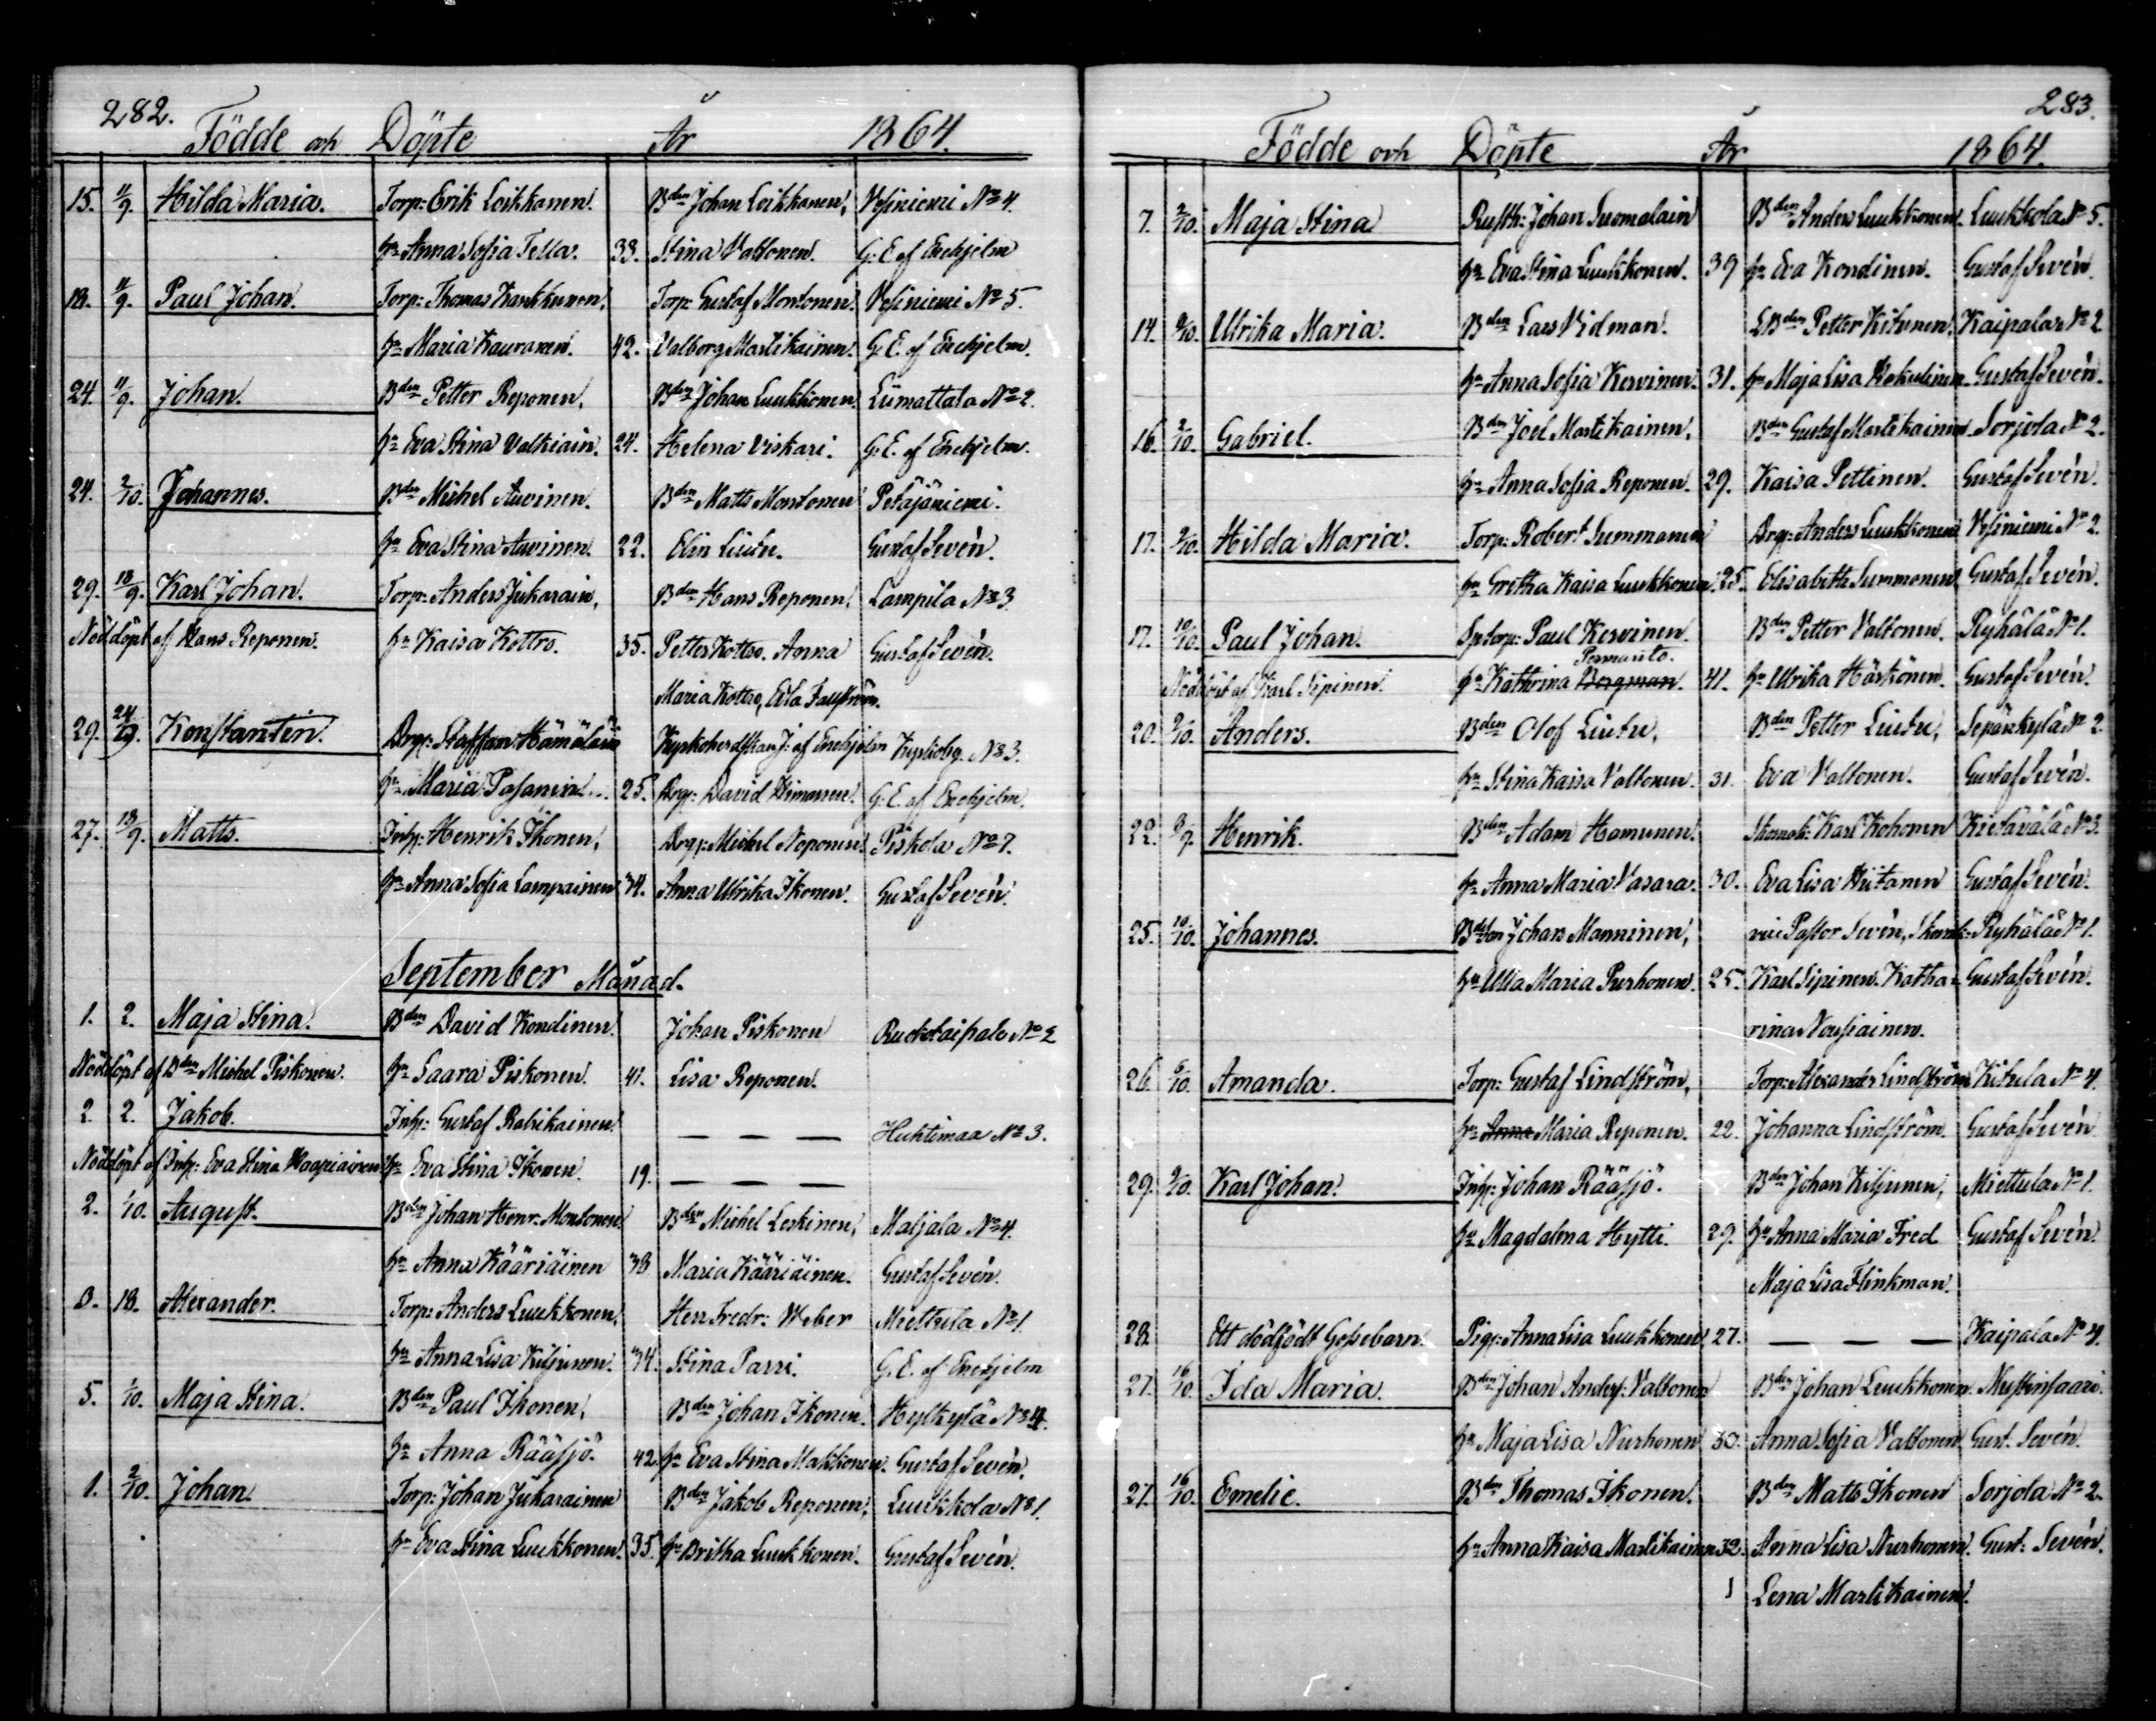 282.
Födde och Döpte År 1864.
15. 11/9. Hilda Maria. Torp: Erik Loikkanen. Bden Johan Loikkanen, Vesiniemi No 4.
hu Anna Sofia Tella. 33. Stina Valtonen. G. E. af Enehjelm
18. 11/9. Paul Johan. Torp: Thomas Karhkunen, Torp: Gustaf Montonen. Vesiniemi No 5.
hu Maria Kauranen. 42. Valborg Martikainen. G. E. af Enehjelm.
24. 11/9. Johan. Bden Petter Reponen, Bden Johan Luukkonen. Liimattala No 2.
hu Eva Stina Valkiain. 24. Helena Viskari. G. E. af Enehjelm.
24. 2/10. Johannes. Bden Michel Auvinen. Bden Matts Montonen Petäjäniemi.
hu Eva Stina Auvinen. 22. Elin Liutu. Gustaf Sevén.
29. 18/9. Karl Johan. Torp: Anders Jukarain, Bden Hans Reponen, Lampila No 3.
Nöddöpt af Hans Reponen. hu Kaisa Kottro. 35. Petter Kottro. Anna Gustaf Sevén.
Maria Kottro, Eva
29. 24/9. Konstantin. Drg: Staffan Hämäläin Kyrkoherdskan J. af Enehjelm Kyrkobg. No 3.
hu Maria Pasanin 25. Drg: David Himanen. G. E. af Enehjelm.
27. 18/9. Matts. Inh: Henrik Ikonen, Drg: Michel Noponen. Piskola No 7.
hu Anna Sofia Lampainen 34. Anna Ulrika Ikonen. Gustaf Sevén.
September Månad.
1. 2. Maja Stina. Bden David Kondinen. Johan Piskonen Ruokotaipale No 2
Nöddöpt af Bden Michel Piskonen. hu Saara Piskonen. 41. Lisa Reponen.
2. 2. Jakob. Inh: Gustaf Ratikainen. — — — Huhtimaa No 3.
Nöddöpt af Inh: Eva Stina Haapiainen. hu Eva Stina Ikonen. 19. — — —
2. 1/10. August. Bden Johan Henr: Montonen. Bden Michel Leskinen, Matjala No 4.
hu Anna Kääriäinen 38 Maria Kääriäinen. Gustaf Sevén.
8. 18. Alexander. Torp: Anders Luukkonen, Herr Fredr: Weber Miettula No 1
hu Anna Lisa Kiljunen. 34. Stina Parri. G. E. af Enehjelm
5. 1/10. Maja Stina. Bden Paul Ikonen, Bden Johan Ikonen. Hylkylä No 4.
hu Anna Rääsjö. 42 hu Eva Stina Makkonen. Gustaf Sevén.
1. 2/10. Johan. Torp: Johan Jukarainen Bden Jakob Reponen, Luukkola No 1.
hu Eva Stina Luukkonen. 35. hu Britha Luukkonen. Gustaf Sevén.
283.
Födde och Döpte År 1864.
7. 2/10. Maja Stina Rusth: Johan Suomalain Bden Anders Luukkonen. Luukkola No 5.
hu Eva Stina Luukkonen. 39 hu Eva Kondinen. Gustaf Sevén.
14. 9/10. Ulrika Maria. Bden Lars Vidman. LBden Petter Kitunen, Kaipala No 2
hu Anna Sofia Kervinen. 31. hu Maja Lisa Gustaf Sevén.
16. 2/10. Gabriel. Bden Joel Martikainen, Bden Gustaf Martikainen. Sorjola No 2.
hu Anna Sofia Reponen. 29. Kaisa Pettinen. Gustaf Sevén.
17. 2/10. Hilda Maria. Torp: Robert Summanen Drg: Anders Luukkonen Vesiniemi No 2.
hu Gretha Kaisa Luukkonen. 25. Elisabeth Summonen. Gustaf Sevén.
17. 10/10. Paul Johan. Sptorp: Paul Kervinen. Bden Petter Valtonen. Ryhälä No 1.
Permanto.
Nöddöpt af Karl Sipinen. hu Kathrina Bergman. 41. hu Ulrika Härkönen. Gustaf Sevén.
20. 2/10. Anders. Bden Olof Liutu, Bden Petter Liutu, Sepänkylä No 2.
hu Stina Kaisa Valtonen. 31. Eva Valtonen. Gustaf Sevén.
22. Henrik. Bden Adam Hamunen. Skomak: Karl Kohonen Kietävälä No 3.
hu Anna Maria Vasara. 30. Eva Lisa Hiitanen Gustaf Sevén.
25. 10/10. Johannes. Johan Manninen, vice Pastor Sevén, Skomak: Ryhälä No 1.
hu Ulla Maria Purhonen. 25. Karl Sipinen. Katha= Gustaf Sevén.
rina Nousiainen.
26. Amanda. Torp: Gustaf Lindström, Torp: Alexander Lindström Kitula No 4.
hu Anna Maria Reponen. 22. Johanna Lindström. Gustaf Sevén
29. 9/10. Karl Johan. Inh: Johan Rääsjö. Bden Johan Kiljunen, Miettula No 1.
hu Magdalena Hytti. 29. hu Anna Maria Fred Gustaf Sevén
Maja Lisa Flinkman.
28. Ett dödfödt Gossebarn. Pig: Anna Lisa Luukkonen. 27. — — — Kaipala No 4.
27. 16/10. Ida Maria. Bden Johan Anders: Valtonen Bden Johan Luukkonen.
hu Maja Lisa Nurhonen 30. Anna Sofia Valtonen Gust. Sevén.
27. 16/10. Emelie. Bden Thomas Ikonen. Bden Matts Ikonen Sorjola No 2.
hu Anna Kaisa Martikainen 32. Anna Lisa Nurhonen. Gust: Sevén.
Lena Martikainen.